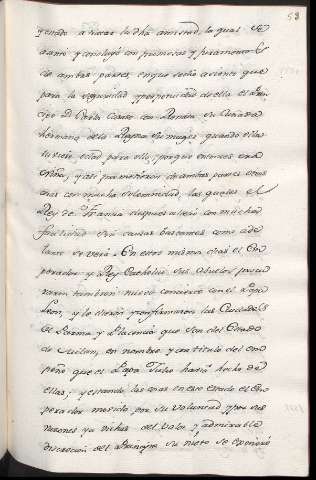 58
y enbió a tratar la dha amistad la qual se
asentó y concluyó con promesas y juramentos
de ambas partes, en que se dio assiento que
para la seguridad y perpetuidad de ella el Prin
cipe D. Carlos Casase con Renata su Cuñada
hermana de la Reyna su muger, quando ella
tuviese edad para ello, porque entonces era
niña, y así prometieron de ambas partes otras
cosas con mucha solemnidad, las quales el
Rey de Francia despues alteró con mucha
facilidad sin causas bastantes como ade
lante se verá. En estos mismos dias el Em
perador y Rey Catholico sus Abuelos procu
raron tambien nuevo concierto con el Papa
Leon, y le dieron y confirmaron las Ciudades
de Parma y Placencia que son del Estado
de Milan, en nombre y con titulo del em
peño que el Papa Julio havia hecho de
ellas, y estando las cosas en este estado el Em
perador movido por su voluntad y por sus
razones ya vistas del valor y admirable
discrecion del Principe su nieto se